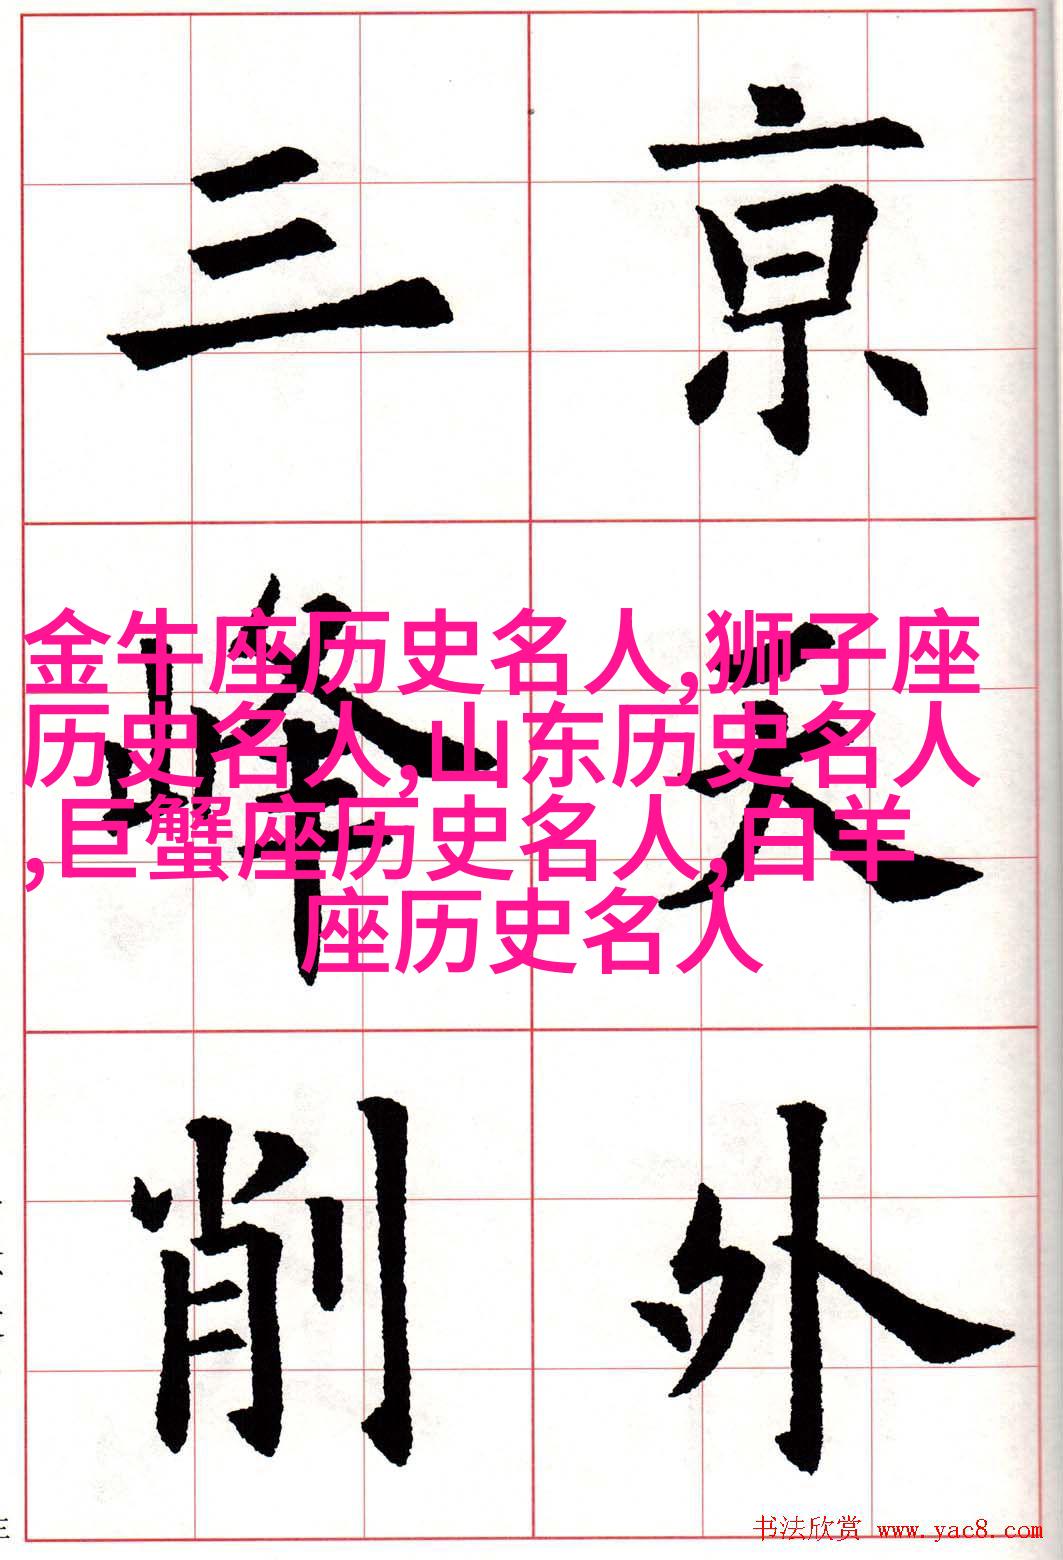 亰天外
三峰削
金牛座历史名人,狮子座
历史名人,山东历史名人
,巨蟹座历史名人,白羊
座历史名人
书法欣赏 www.yac8.com